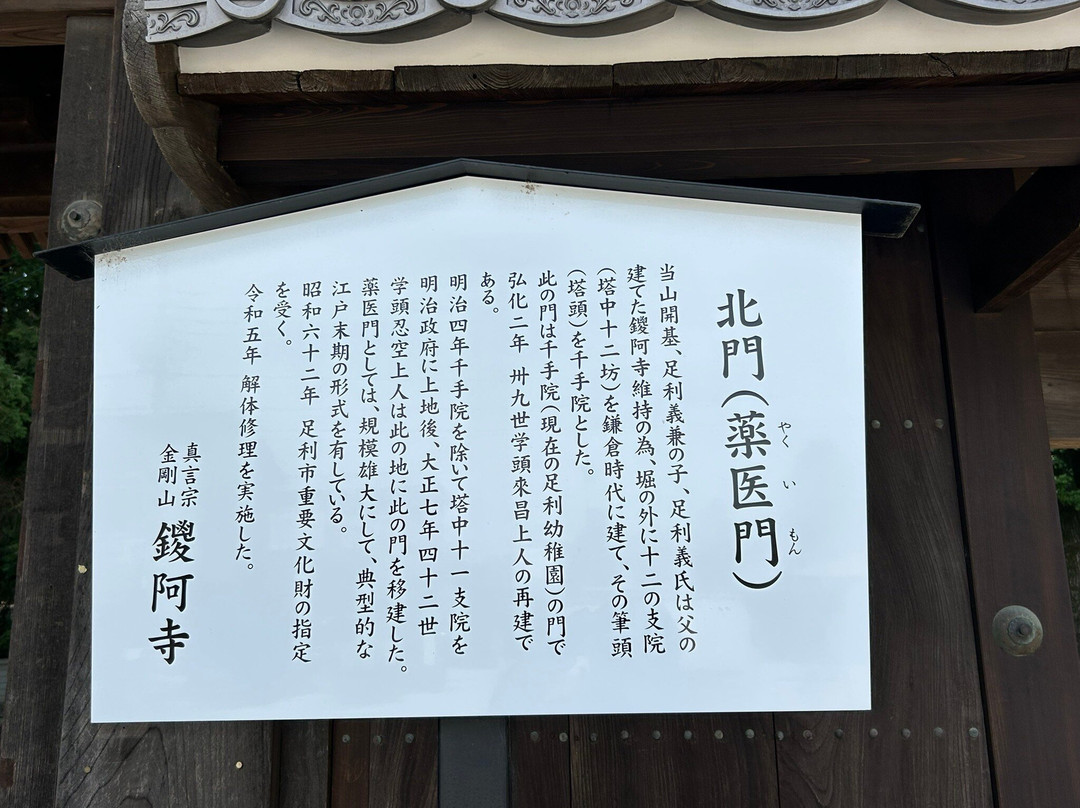 北門（薬医門）
やくいもん
当山開基、足利義兼の子、足利義氏は父の
建てた鑁阿寺維持の為、堀の外に十二の支院
（塔中十二坊）を鎌倉時代に建て、その筆頭
（塔頭）を千手院とした。
此の門は千手院（現在の足利幼稚園）の門で
弘化二年　卅九世学頭來昌上人の再建で
ある。
明治四年千手院を除いて塔中十一支院を
明治政府に上地後、大正七年四十二世
学頭忍空上人は此の地に此の門を移建した。
薬医門としては、規模雄大にして、典型的な
江戸末期の形式を有している。
昭和六十二年　足利市重要文化財の指定
を受く。
令和五年　解体修理を実施した。
真言宗
金剛山
鑁阿寺